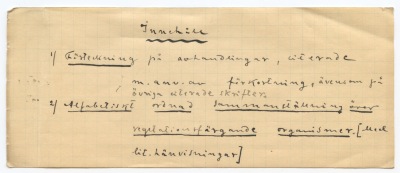 Innehåll
1) Förteckning på avhandlingar, citerade
m. anv. av förkortning, ävensom på
övriga citerade skrifter
2) Alfabetiskt ordnad sammanställning över
vegetationsfärgande organismer. [Med
lit. hänvisningar]